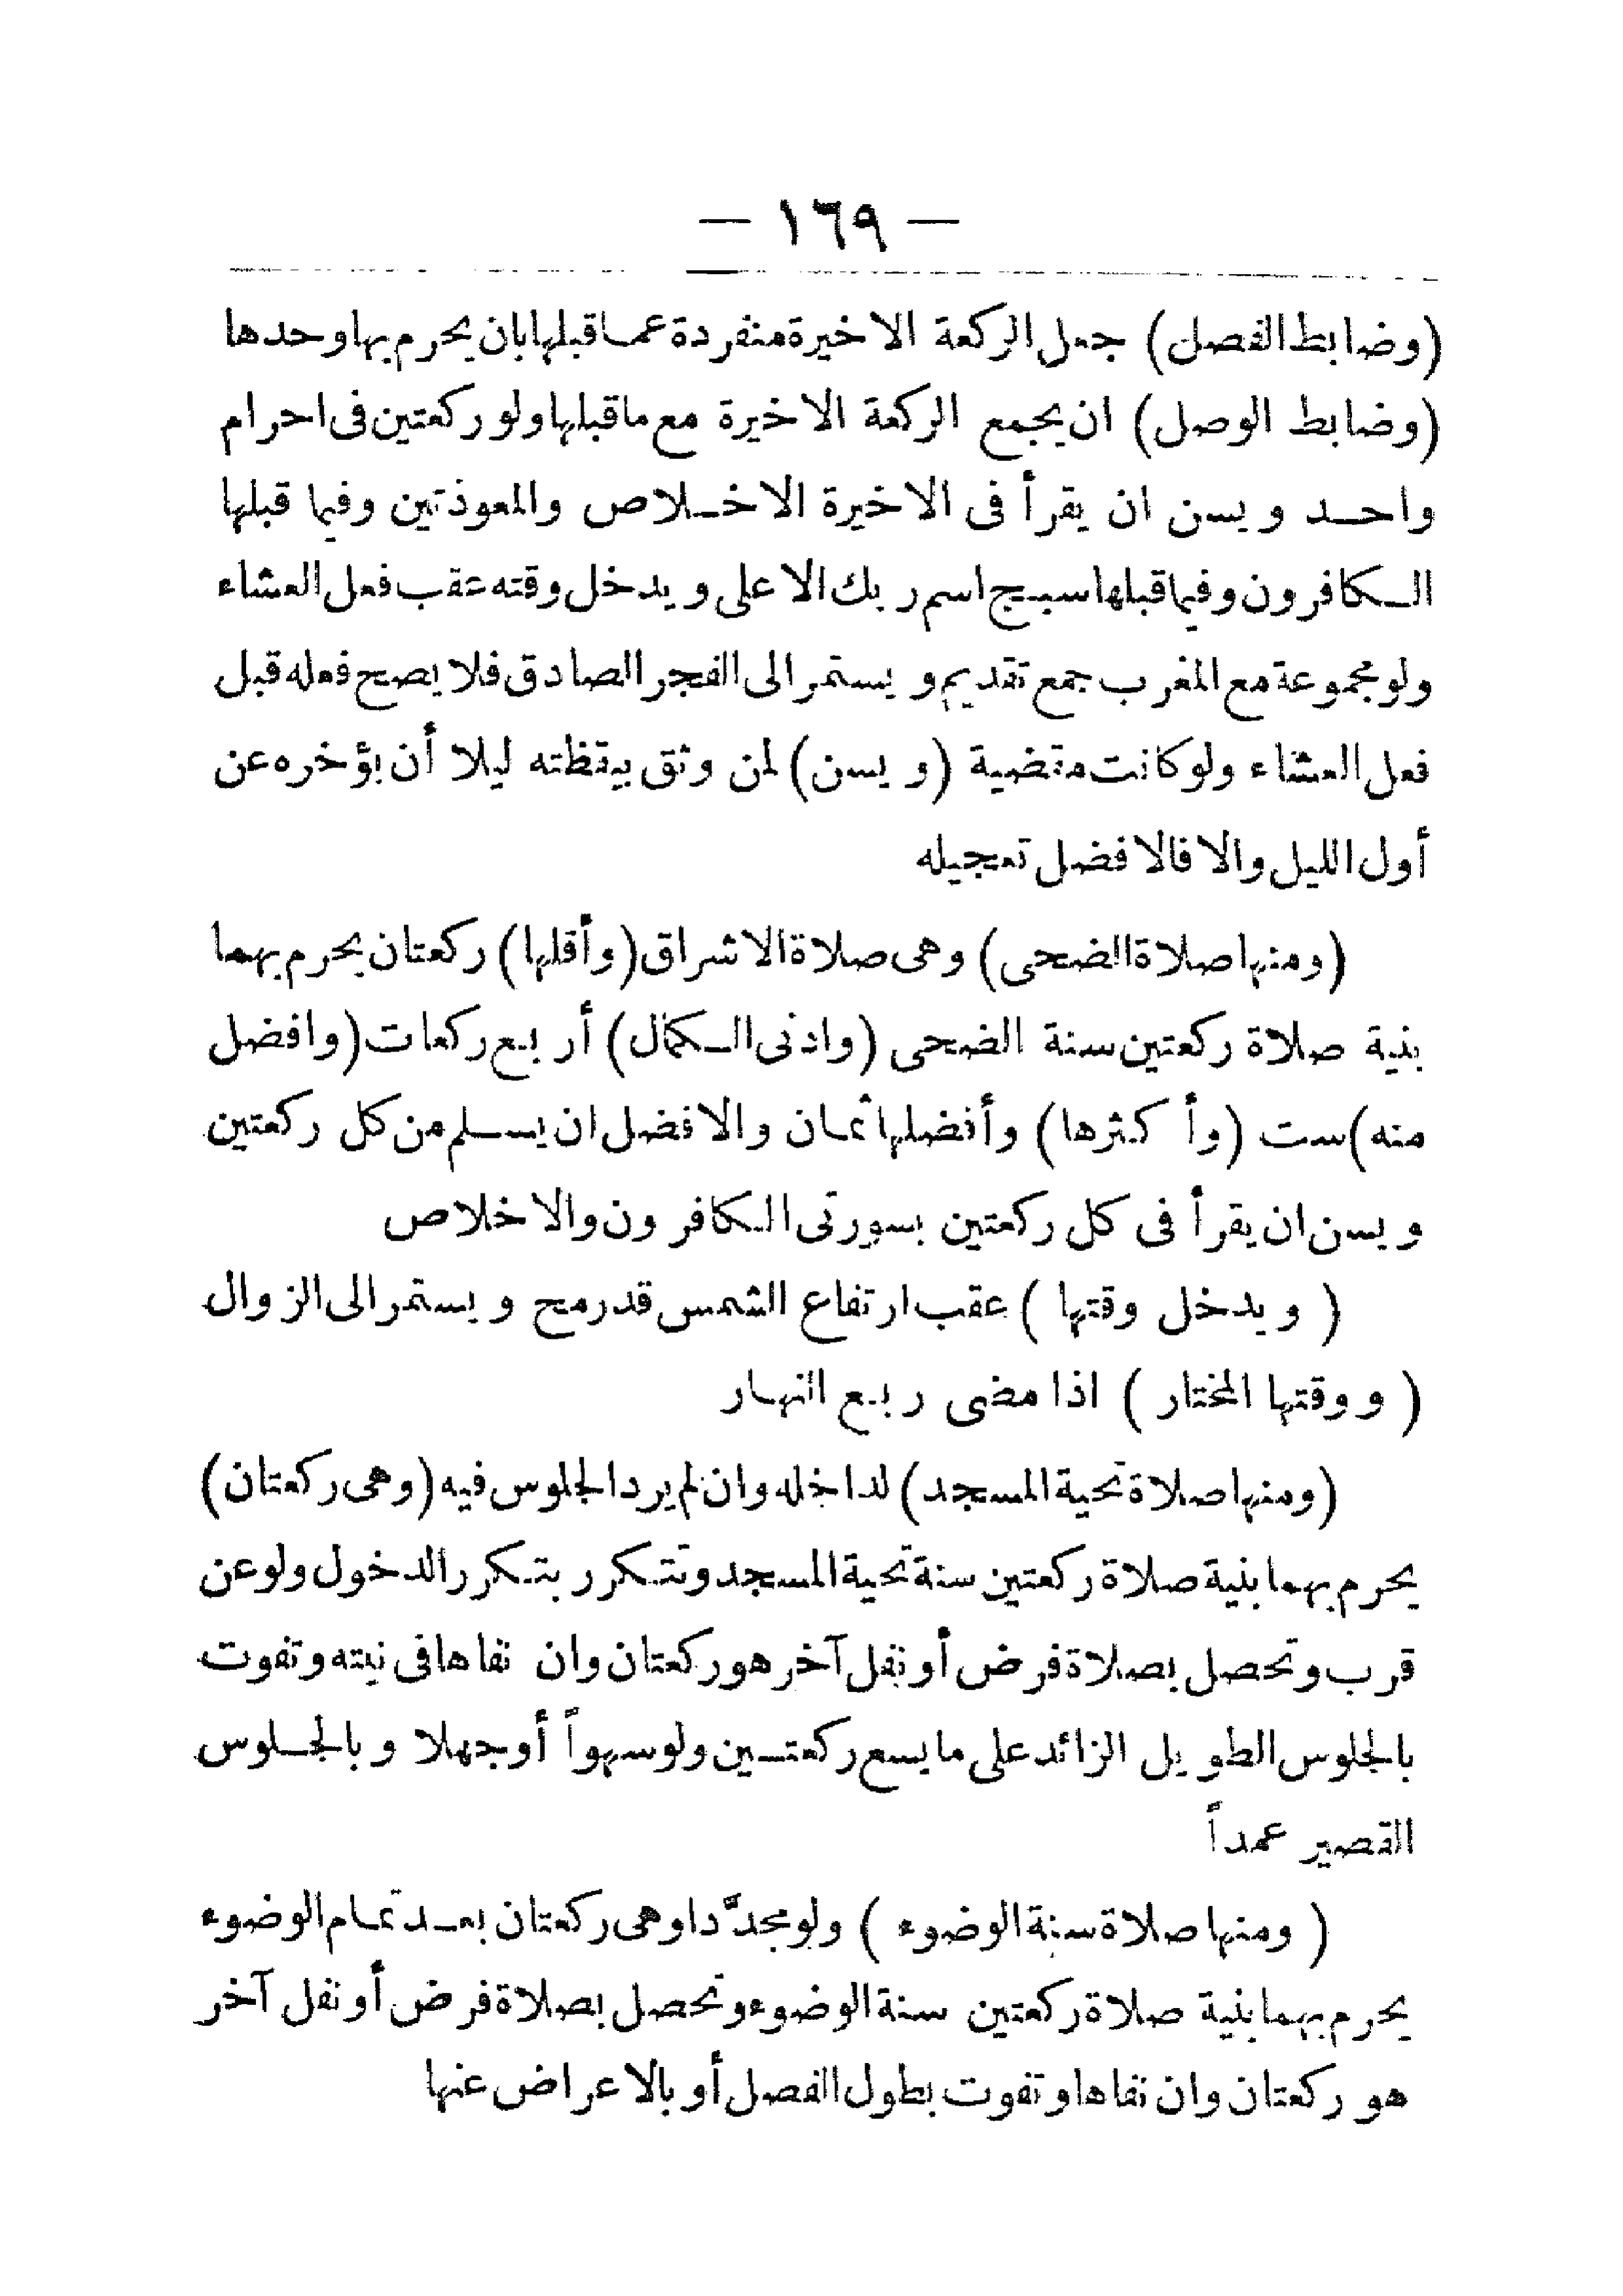 — ١٦٩ —
(وضابط الفصل) جعل الركعة الاخيرة منفردة عما قبلها بان يحرم بها وحدها
(وضابط الوصل) ان يجمع الركعة الاخيرة مع ما قبلها ولو ركعتين فى احرام
واحد ويسن ان يقرأ فى الاخيرة الاخلاص والمعوذتين وفيما قبلها
الكافرون وفيما قبلها سبح اسم ربك الاعلى ويدخل وقته عقب فعل العشاء
ولو مجموعة مع المغرب جمع تقديم ويستمر الى الفجر الصادق فلا يصح فعله قبل
فعل العشاء ولو كانت مقضية (ويسن) لمن وثق بيقظته ليلا أن يؤخره عن
أول الليل والا فالافضل تعجيله
(ومنها صلاة الضحى) وهى صلاة الاشراق (وأقلها) ركعتان يحرم بهما
بنية صلاة ركعتين سنة الضحى (وادنى الكمال) أربع ركعات (وافضل
منه) ست (وأكثرها) وأفضلها ثمان والافضل ان يسلم من كل ركعتين
ويسن ان يقرأ فى كل ركعتين بسورتى الكافرون والاخلاص
( ويدخل وقتها ) عقب ارتفاع الشمس قدر رمح ويستمر الى الزوال
( ووقتها المختار ) اذا مضى ربع النهار
(ومنها صلاة تحية المسجد) لداخله وان لم يرد الجلوس فيه (وهى ركعتان)
يحرم بهما بنية صلاة ركعتين سنة تحية المسجد وتتكرر بتكرر الدخول ولو عن
قرب وتحصل بصلاة فرض أو نفل آخر هو ركعتان وان نفاها فى نيته وتفوت
بالجلوس الطويل الزائد على ما يسع ركعتين ولو سهواً أو جهلا وبالجلوس
القصير عمداً
( ومنها صلاة سنة الوضوء ) ولو مجدَّدا وهى ركعتان بعد تمام الوضوء
يحرم بهما بنية صلاة ركعتين سنة الوضوء وتحصل بصلاة فرض أو نفل آخر
هو ركعتان وان نفاها وتفوت بطول الفصل أو بالاعراض عنها